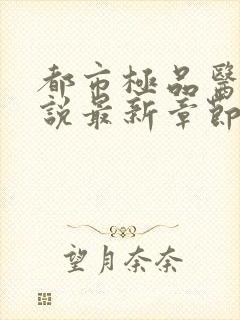 都市極品醫
說最新章節
望月奈奈